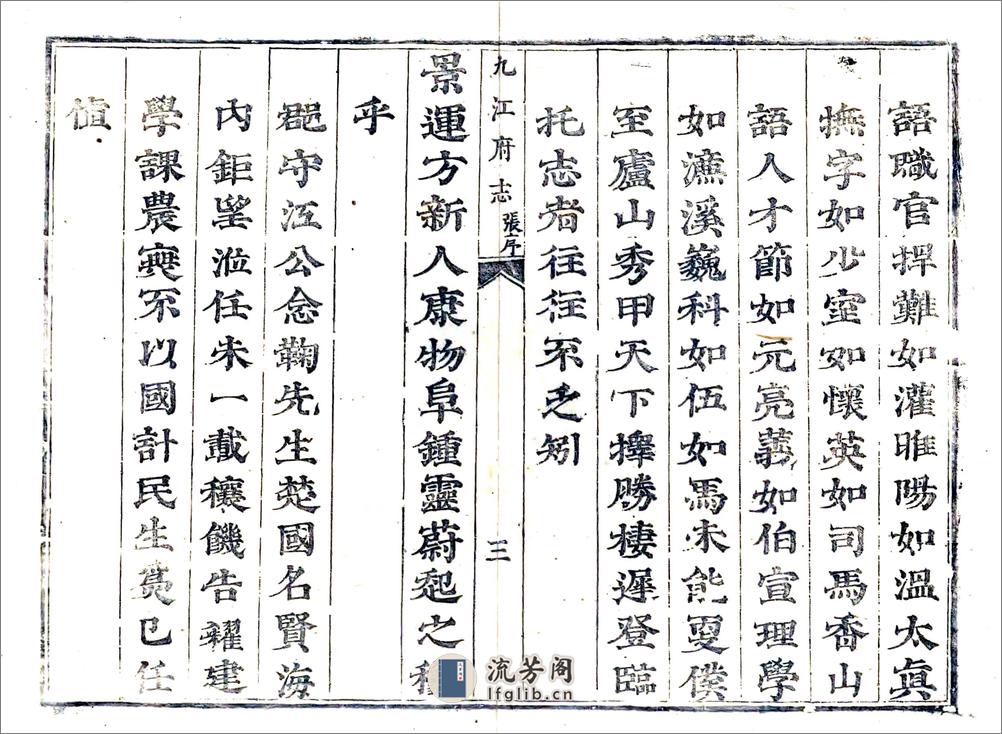 語職官捍難如灌睢陽如溫太眞
撫字如少室如懷英如司馬香山
語人才節如元亮義如伯宣理學
如濂溪巍科如伍如馬未能更僕
至廬山秀甲天下擇勝棲遲登臨
托志者往往不乏矧
九江府志 張序 三
景運方新人康物阜鍾靈蔚起之
乎
郡守江公念鞠先生楚國名賢海
內鉅望涖任未一載穰饑告糴建
學課農無不以國計民生爲已任
值
流芳阁
lfglib.cn